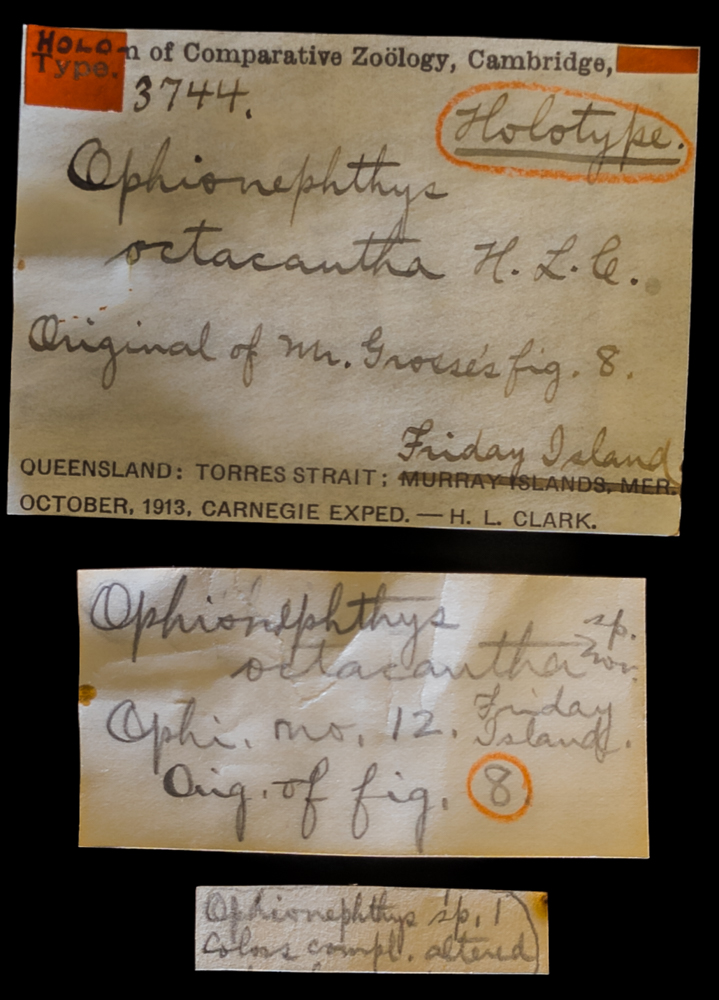 HOLO-
Type.
m of Comparative Zoölogy, Cambridge,
3744.
Holotype.
Ophionephthys
octacantha H. L. C.
Original of Mr. Grosse's fig. 8.
Friday Island
QUEENSLAND: TORRES STRAIT; MURRAY ISLANDS, MER.
OCTOBER, 1913, CARNEGIE EXPED. — H. L. CLARK.
Ophionephthys
octacantha sp. nov.
Ophi. no. 12. Friday Island.
Orig. of fig. 8
Ophionephthys sp. 1
Colors compl. altered